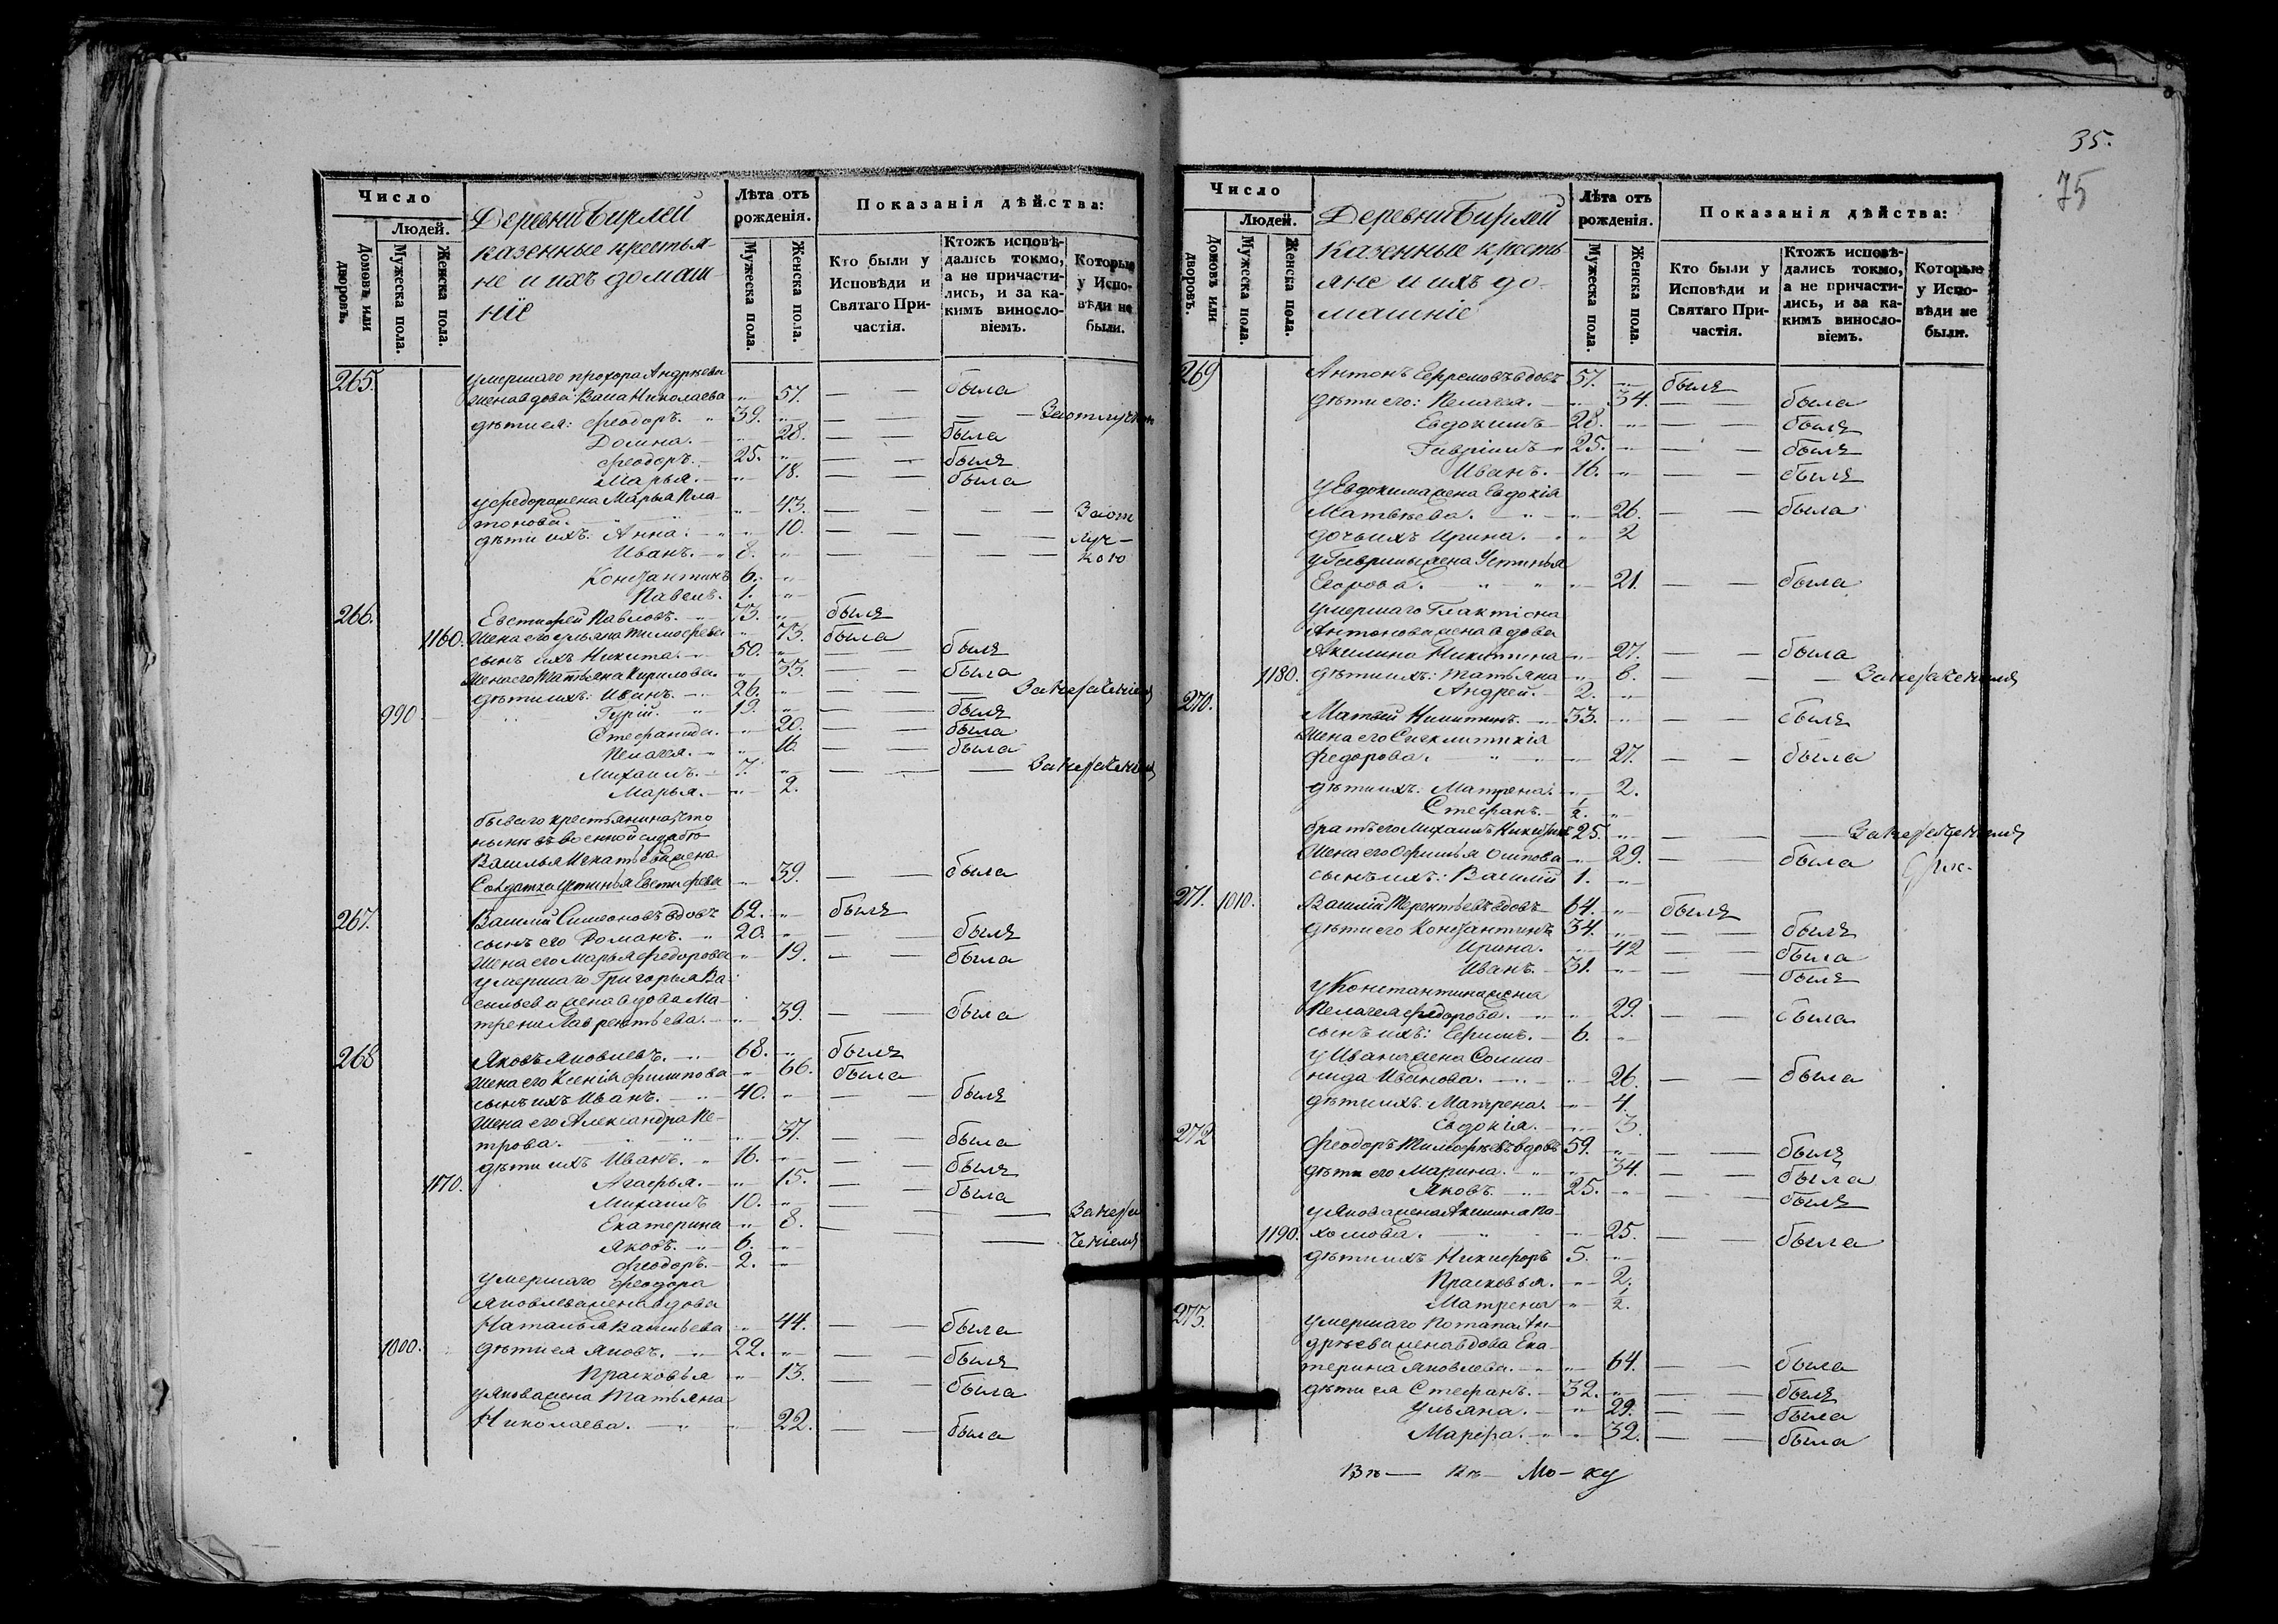 35.
75
Число
Людей.
Домовъ или дворовъ.
Мужеска пола.
Женска пола.
Деревни Бирлей
казенные крестья-
не и ихъ домаш-
ніе
Лѣта отъ рожденія.
Мужеска пола.
Женска пола.
Показанія дѣйства:
Кто были у Исповѣди и Святаго При-частія.
Ктожъ исповѣ-дались токмо, а не причасти-лись, и за ка-кимъ винносло-віемъ.
Которые у Испо-вѣди не были.
265. умершаго Прохора Андрѣева
жена вдова Васа Николаева " 57. — — была
дѣти ея: Феодоръ. " 39. " — — — За отлучкою
Домна. — " 28. — — была
Феодоръ. — 25. " — — былъ
Марья. — " 18. — — была
у Федора жена Марья Пла-
тонова. " 43. — — — — За от
дѣти ихъ: Анна. — " 10. — — — — луч-
Иванъ. — 8. " — — — кою
Константинъ 6. "
Павелъ. 1. "
266. Евстифей Павловъ. — 73. " былъ
1160. жена его Ульяна Тимофеева " 73. была
сынъ ихъ Никита. — 50. " — — былъ
жена его Татьяна Кирилова. " 53. — — была
дѣти ихъ: Иванъ. — 26. " — — — За нераченіемъ
990. Гурій. " 19. " — — былъ
Стефанида. — " 20. — — была
Пелагея. — " 16. — — была
Михаилъ. — 7. " — — — За нераченіемъ
Марья. — " 2.
бывшаго крестьянина, что
нынѣ въ военной службѣ
Василья жена
Солдатка Устинья Евстифева — 39. — — была
267. Василій Симеоновъ вдовъ 62. " былъ
сынъ его Романъ. " 20. " — — былъ
жена его Марья Федорова " 19. — — была
умершаго Григорья Ва-
сильева жена вдова Ма-
трена Лаврентьева. — " 39. — — была
268 Яковъ Яковлевъ. — 68. " былъ
жена его Ксенія Филипова " 66. была
сынъ ихъ Иванъ. — 40. " — — былъ
жена его Александра Пе-
трова. " 37. — — была
дѣти ихъ Иванъ. " 16. " — — былъ
1170. Агафья. — " 15. — — была
Михаилъ 10. " — — — За нера
Екатерина " 8. —
Яковъ. — 6. " — ченіемъ
Феодоръ. — 2. "
умершаго Феодора
Яковлева жена вдова
Наталья Васильева " 44. — — была
1000. дѣти ея Яковъ. — 22. " — — былъ
Прасковья " 13. — — была
у Якова жена Татьяна
Николаева. — " 22. — — была
Число
Людей.
Домовъ или дворовъ.
Мужеска пола.
Женска пола.
Деревни Бирлей
казенные кресть
яне и ихъ до-
машніе
Лѣта отъ рожденія.
Мужеска пола.
Женска пола.
Показанія дѣйства:
Кто были у Исповѣди и Святаго При-частія.
Ктожъ исповѣ-дались токмо, а не причасти-лись, и за ка-кимъ винносло-віемъ.
Которые у Испо-вѣди не были.
269 Антонъ Ефремовъ вдовъ 57. " былъ
дѣти его: Пелагея. — " 34. — — была
Евдокимъ — 28. " — — былъ
Гавріилъ " 25. " — — былъ
Иванъ. — 16. " — — былъ
у Евдокима жена Евдокія
Матвѣева. — " 26. — — была
дочь ихъ Ирина. — " 2
у Гаврилы жена Устинья
Егорова. " " 21. — — была
умершаго Галактіона
Антонова жена вдова
Акилина Никитина " 27. — — была
1180. дѣти ихъ: Татьяна " 6. — — — За нераченіемъ
Андрей. — 2. "
270. Матвей Никитинъ. — 33. " — — былъ
жена его Сигклитикія
Федорова. " " 27. — — была
дѣти ихъ: Матрена. — " 2.
Стефанъ. — ½. "
братъ его Михаилъ Никитинъ 25. " — — — За нераченіемъ
жена его Офимья Осипова " 29. — — была
сынъ ихъ: Василій 1. "
271. 1010. Василій Терентьевъ вдовъ 64. " былъ
дѣти его Константинъ 34. " — — былъ
Ирина. " 42 — — была
Иванъ. — 31. " — — былъ
у Константина жена
Пелагея Федорова. — " 29. — — была
сынъ ихъ: Ефимъ. — 6. "
у Ивана жена Соло-
нида Иванова. — " 26. — — была
дѣти ихъ. Матрена. — " 4.
Евдокія. — " 3.
272 Феодоръ Тимофѣевъ вдовъ 59. " — — былъ
дѣти его Марина. — " 34. — — была
Яковъ. — 25. " — — былъ
у Якова жена Акилина Па-
1190. хомова. — " 25. — — была
дѣти ихъ Никифоръ 5. "
Прасковья. — " 2.
Матрена " ½.
273. умершаго Потапа Ан-
дрѣева жена вдова Ека-
терина Яковлева. — " 64. — — была
дѣти ея Стефанъ. — 32. " — — былъ
Ульяна. — " 29. — — была
Марфа. — " 32. — — была